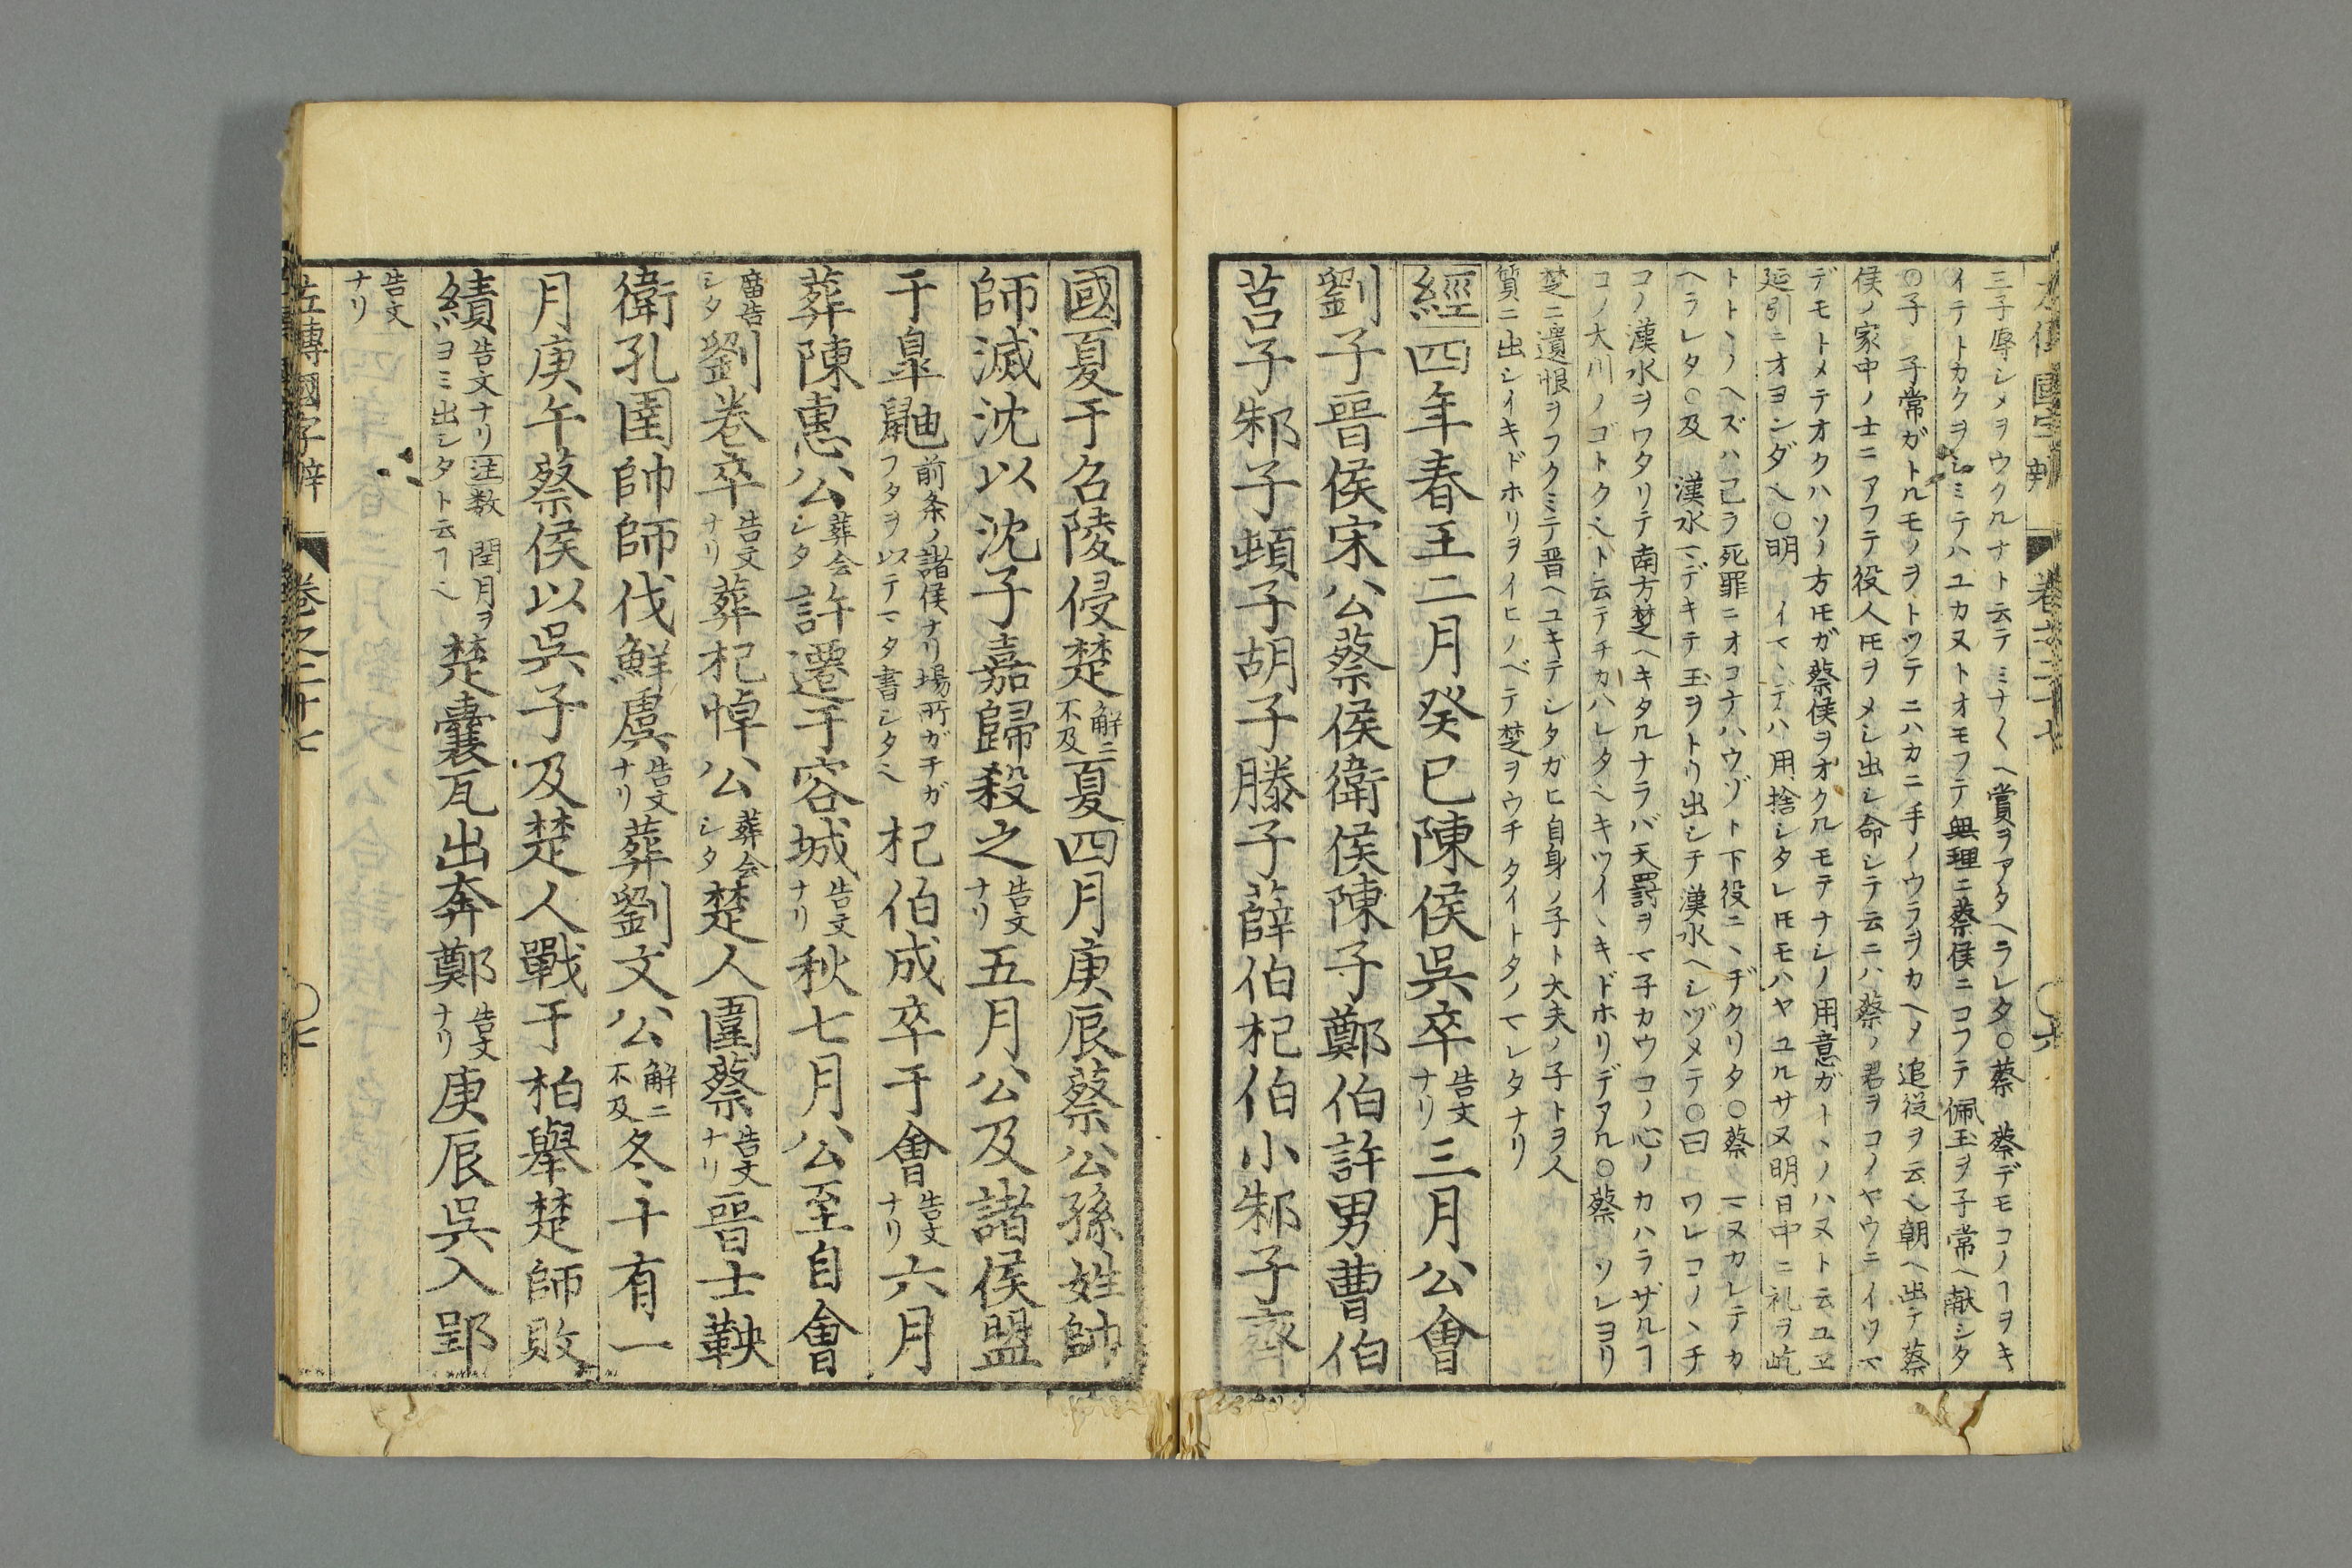 三子辱シメヲウクルナト云テミナ〱ヘ賞ヲアタヘラレタ○蔡　蔡デモコノヿヲキ
イテトカクヲシミテハユカヌトオモフテ無理ニ蔡侯ニコフテ佩玉ヲ子常ヘ献シタ
○子　子常ガトルモノヲトツテニハカニ手ノウラヲカヘメ追従ヲ云ヘ朝ヘ出テ蔡
侯ノ家中ノ士ニアフテ役人𪜈ヲメシ出シ命シテ云ニハ蔡ノ君ヲコノヤウニイツマ
デモトメテオクハソノ方𪜈ガ蔡侯ヲオクルモテナシノ用意ガトヽノハヌト云ユヱ
延引ニオヨンダヘ○明　イマヽデハ用捨シタレ𪜈モハヤユルサヌ明日中ニ礼ヲ
トトヽノヘズハ己ラ死罪ニオコナハウゾト下役ニヽヂクリタ○蔡　マヌカレテカ
ヘラレタ○及　漢水マデキテ玉ヲトリ出シテ漢水ヘシヅメテ○曰　ワレコノヽチ
コノ漢水ヲワタリテ南方楚ヘキタルナラバ天罰ヲマ子カウコノ心ノカハラザルヿ
コノ大川ノゴトクヘト云テチカハレタヘキツイヽキドホリデアル○蔡　ソレヨリ
楚ニ遺恨ヲフクミテ晋ヘユキテシタガヒ自身ノ子ト大夫ノ子トヲ人
質ニ出シイキドホリヲイヒノベテ楚ヲウチタイトタノマレタナリ
經四年春王二月癸巳陳侯吳卒告文ナリ三月公會
劉子晉侯宋公蔡侯衛侯陳子鄭伯許男曹伯
莒子邾子頓子胡子滕子薛伯杞伯小邾子齊
國夏于召陵侵楚解ニ不及夏四月庚辰蔡公孫姓帥
師滅沈以沈子嘉歸殺之告文ナリ五月公及諸侯盟
于皐鼬前条ノ諸侯ナリ場所ガチガフタヲ以テマタ書シタヘ杞伯成卒于會告文ナリ六月
葬陳惠公葬会シタ許遷于容城告文ナリ秋七月公至自會
廟告シタ劉卷卒告文ナリ葬杞悼公葬会シタ楚人圍蔡告文ナリ晉士鞅
衛孔圉帥師伐鮮虞告文ナリ葬劉文公解ニ不及冬十有一
月庚午蔡侯以吳子及楚人戰于柏舉楚師敗
績告文ナリ注数　閏月ヲヨミ出シタト云ヿヘ楚囊瓦出奔鄭告文ナリ庚辰吳入郢
告文ナリ
左傳國字辯　卷之二十七